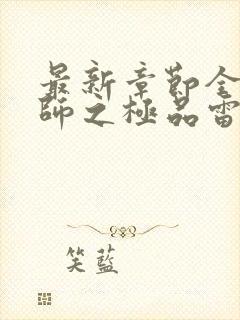 最新章節全
師之極品雷
笑藍